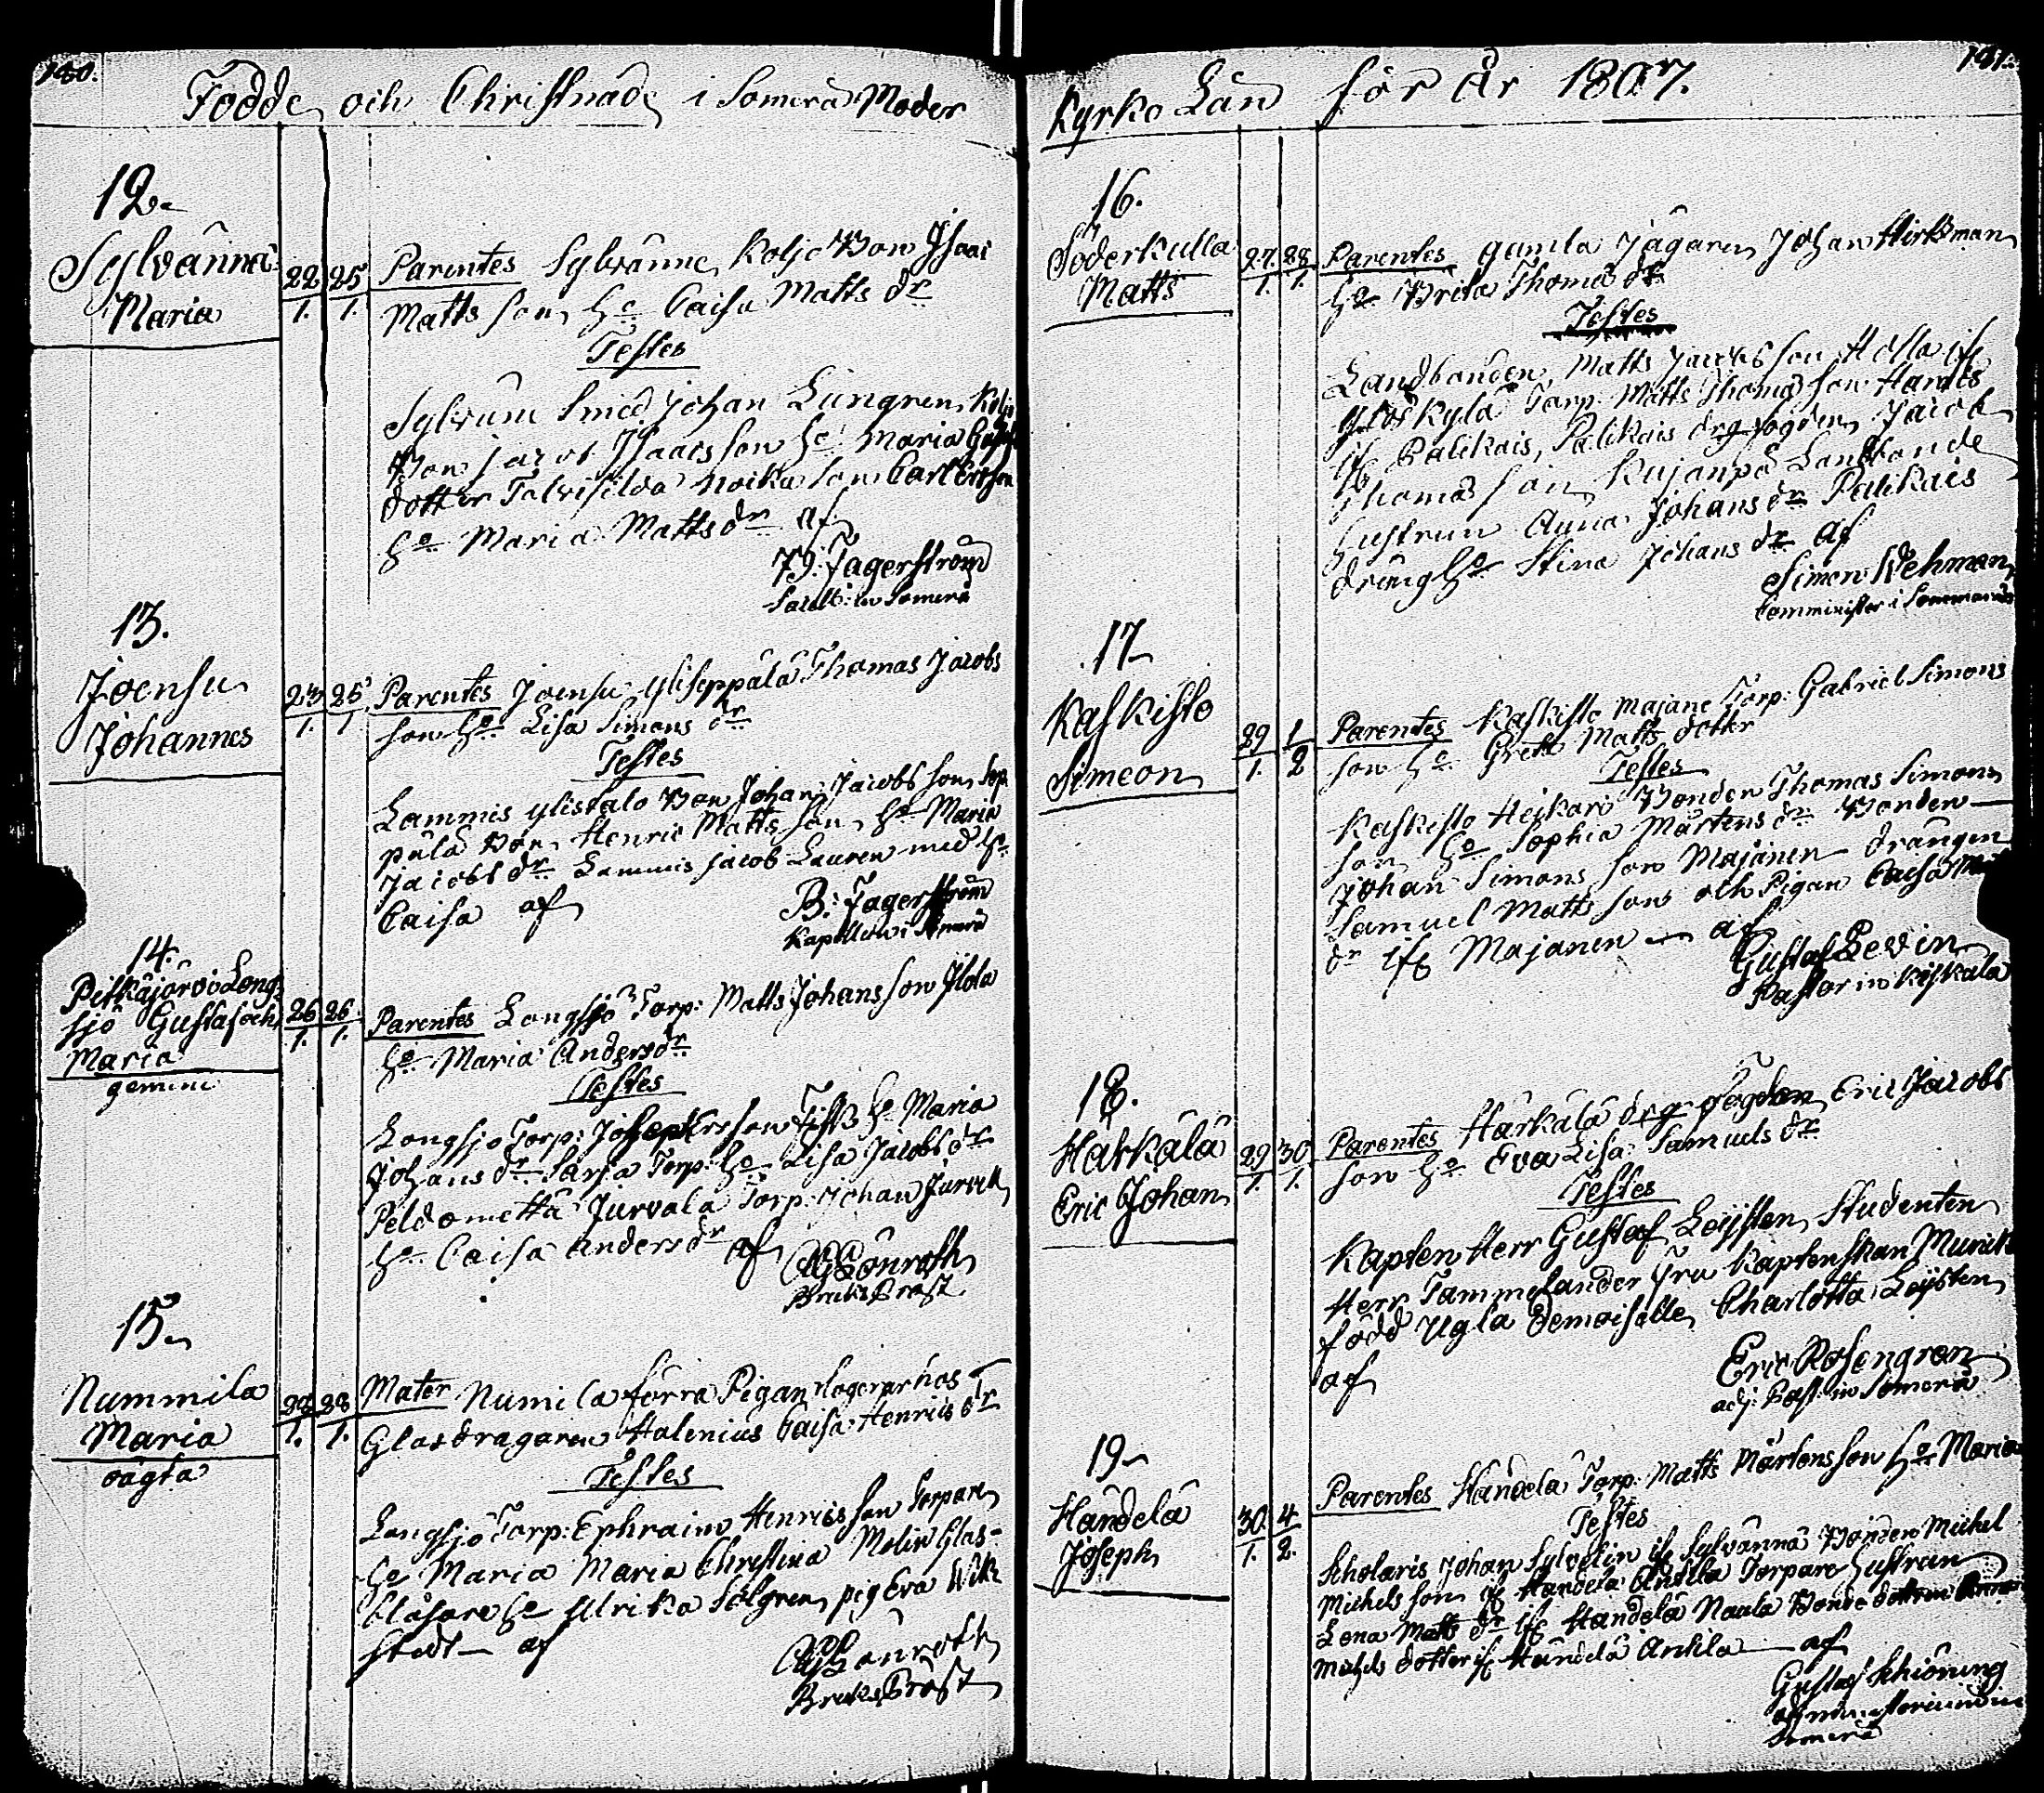 180.
Födde och Christnade i Somero Moder
12.
Sylvänne
Maria
22 25
1. 1.
Parentes Sylvänne Koljo Bon Isaac
Matts son ho Caisa Matts dr
Testes
Sylvänä Smed Johan Lungren, Koljo
Bon Jacob Isaacs son ho Maria
dotter Talvisilda Carl Ersson
ho Maria Matts dr af
B: Jagerström
Somero
13.
Joensu
Johannes
23 25
1. 1.
Parentes Joensu Yliseppälä Thomas Jacobs
son ho Lisa Simons dr
Testes
Lammis Ylistalo Bon Johan Jacobs son Sep
pälä Bon Henric Matts son ho Maria
Jacobs dr Lammis Jacob Lauren med ho
Caisa af
B: Jagerström
Kapellan i Somero
14.
Pitkäjärvi Long
sjö Gustaf och
Maria
gemini
26 26
1. 1.
Parentes Longsjö Torp: Matts Johans son
ho Maria Anders dr
Testes
Longsjö Torp: Joseph Ersson ho Maria
Johans dr Sarja Torp: ho Lisa Jacobs dr
Peldometta Jurvala Torp: Johan
ho Caisa Anders dr af
Lönroth
Bruks Präst
15.
Nummila
Maria
oägta
28 28
1. 1.
Mater Numila förra Pigan hos
Glasdragaren Halenius Caisa Henrics dr
Testes
Longsjö Torp: Ephraim Henrics son Torpare
ho Maria Maria Christina Molin Glas-
blåsare ho Ulrika Sölgren pig Eva Wik
stedt af
Lönroth
Bruks Präst
181.
Kyrko Län för år 1807.
16.
Söderkulla
Matts
27. 28
1. 1.
Parentes gamla Jägaren Johan Hirkman
ho Brita Thomas dr
Testes
Landbonden Matts Jacobs son
Kyla Torp: Matts Thomas son
if Palikais, Palikais drg fogden Jacob
Thomas son Kujanpä Landbonde
hustrun Anna Johans dr Palikais
dräng ho Stina Johans dr af
Simon Wehman
Comminister i Sommarnäs
17.
Kaskisto
Simeon
29 1
1. 2
Parentes Kaskisto Majane Torp: Gabriel Simons
son ho Greta Matts dotter
Testes
Kaskisto Heikari Bonden Thomas Simons
son ho Sophia Mårtens dr Bonden
Johan Simons son Majanen drängen
Samuel Matts son och Pigan Caisa
dr if Majanen af
Gustaf Levin
Pastor in Kiskala
18.
Harkälä
Eric Johan
29 30
1. 1.
Parentes Härkälä drg fogden Eric Jacobs
son ho Eva Lisa Samuels dr
Testes
Kapten Herr Gustaf Leijsten Studenten
Herr Tammelander Fru Kaptenskan Munck
född Ugla Demoiselle Charlotta Leijsten
af
Eric Rosengren
adj: Past: in Somero
19.
Händelä
Joseph
30 4
1. 2.
Parentes Händelä Torp: Matts Mårtens son ho Maria
Testes
Scholaris Johan Sylvelin if Sylvännä Bonden Michel
Michels son if Händelä Anttila Torpare hustrun
Lena Matts dr if Händelä Naula Bonde dottren Anna
Michels dotter if Händelä Anttila af
Gustaf Schiönning
Somero